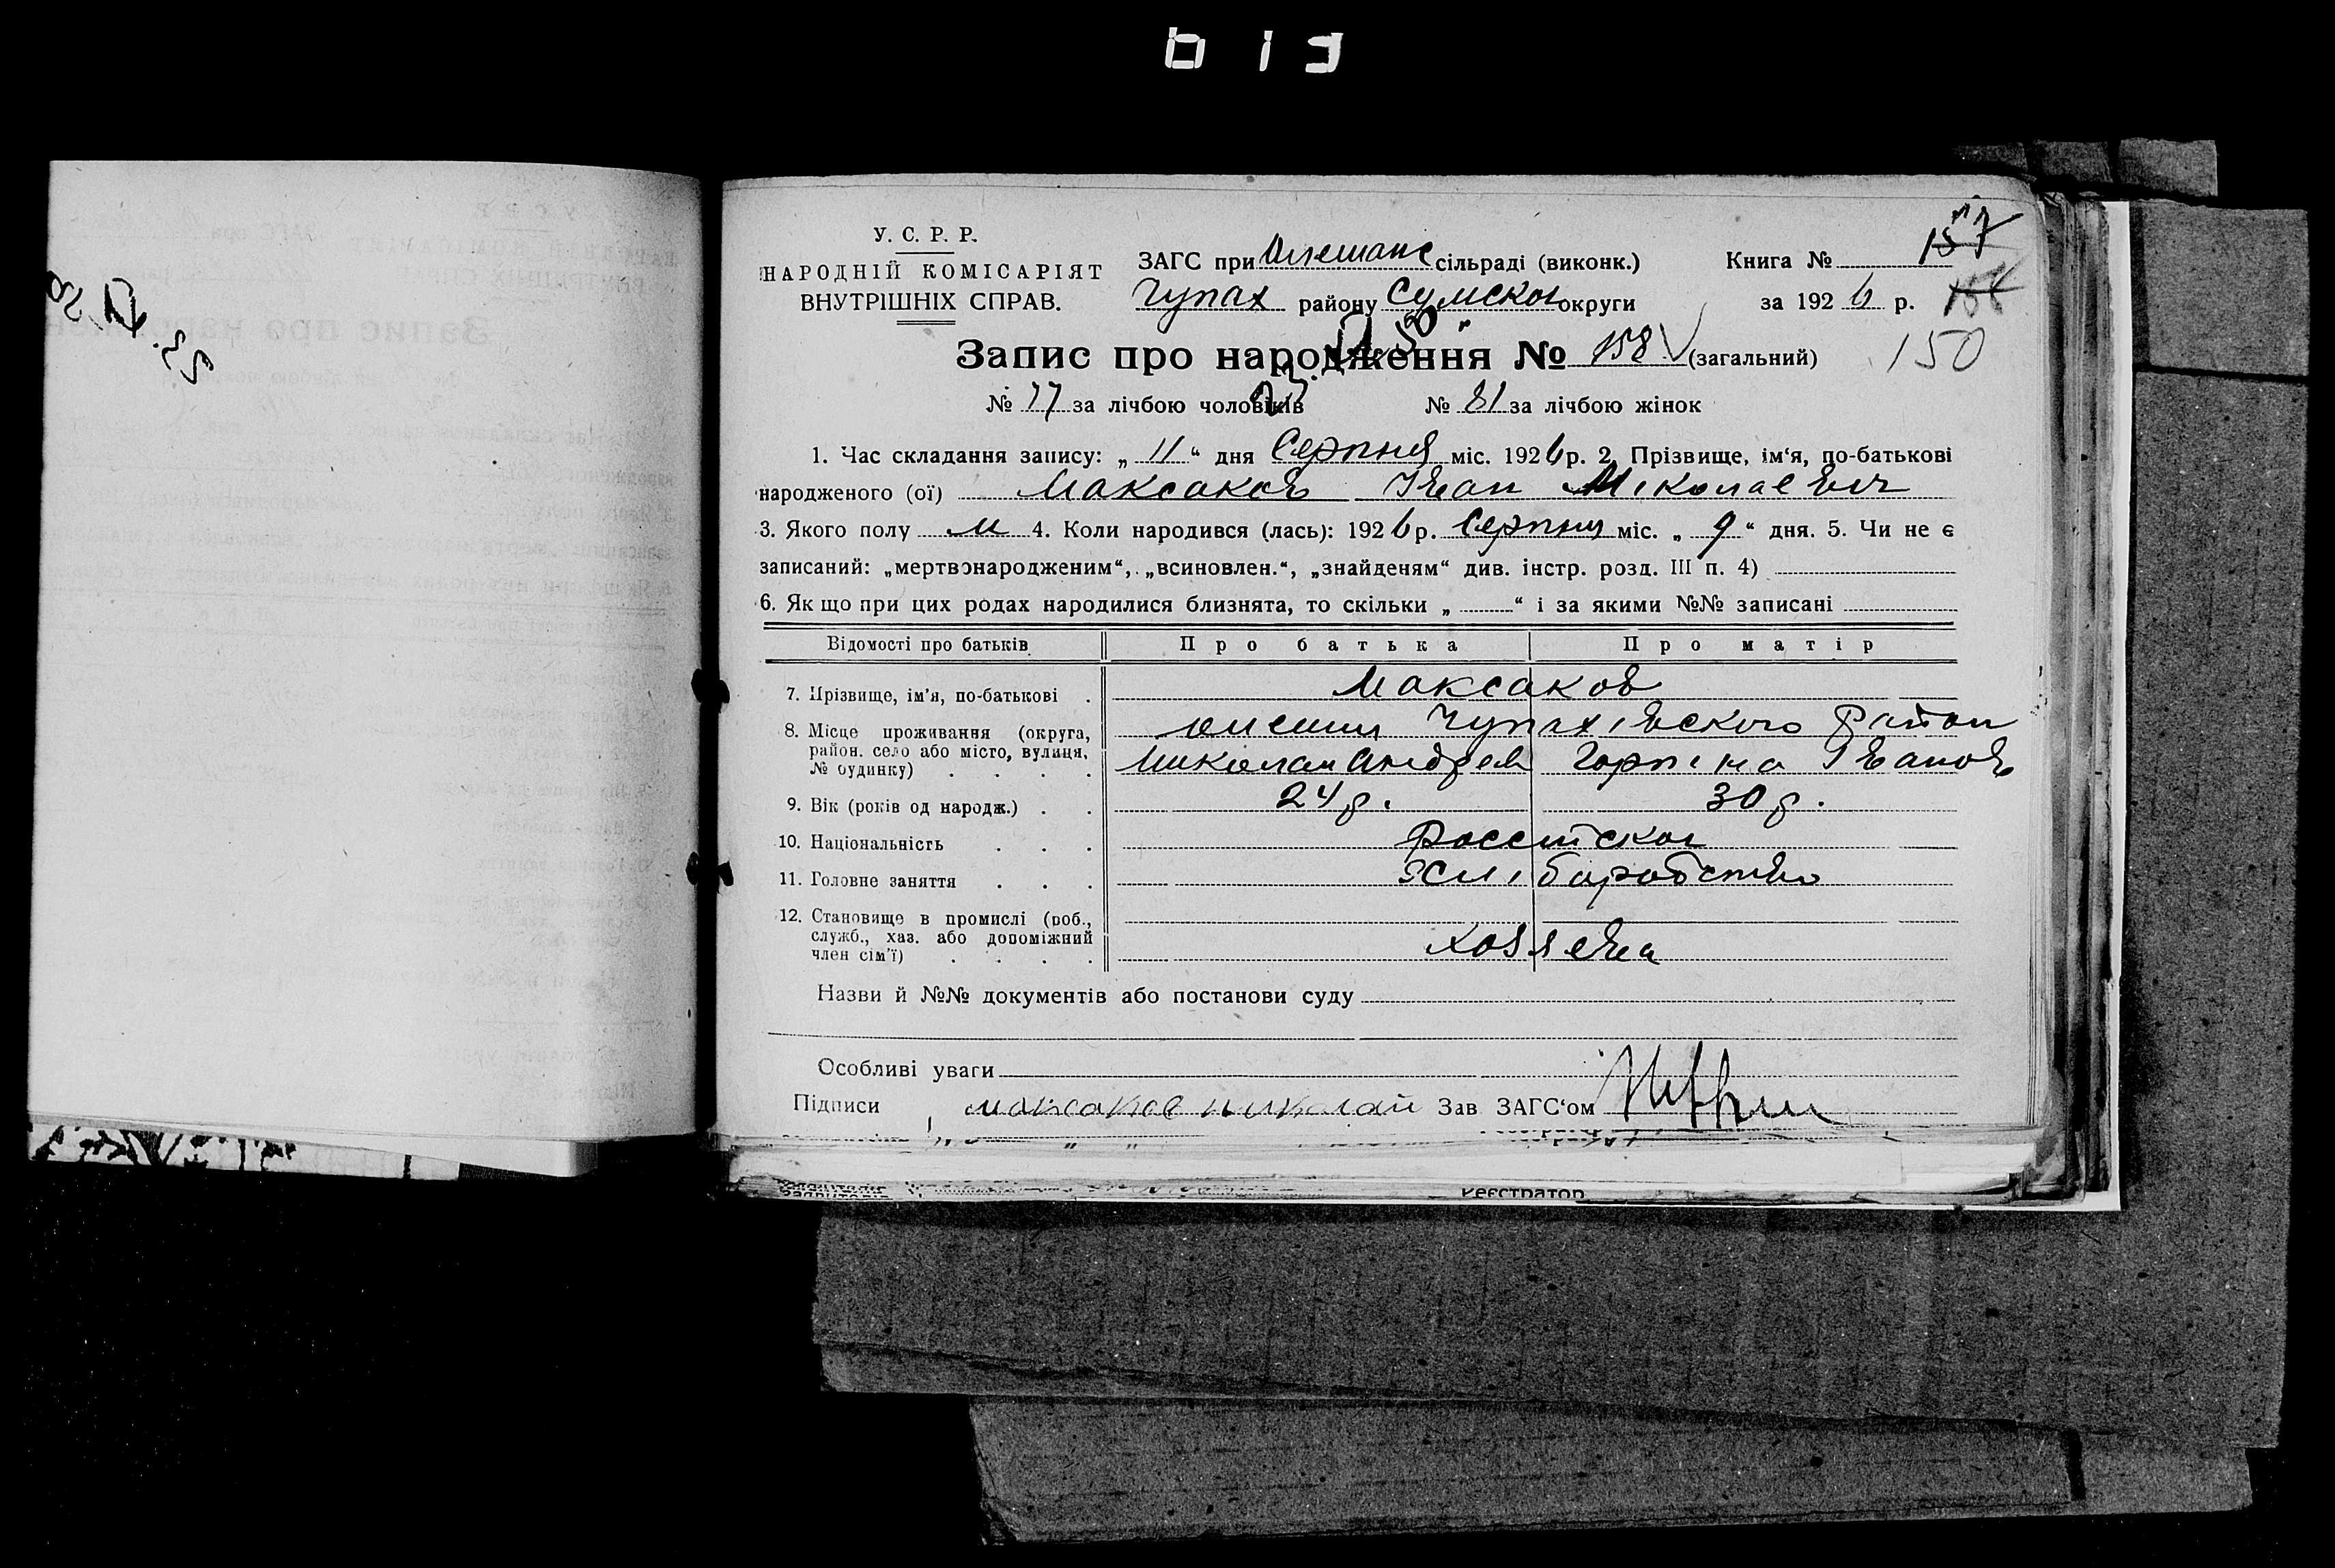 У. С. Р. Р.
НАРОДНІЙ КОМІСАРІЯТ
ВНУТРІШНІХ СПРАВ.
ЗАГС при Олешанс сільраді (виконк.)
Чупах району Сумской округи
Книга №
за 1926 р.
157
150
Запис про народження № 158 (загальний)
№ 77 за лічбою чоловіків № 81 за лічбою жінок
1. Час складання запису: „ 11 “ дня Серпня міс. 1926 р. 2. Прізвище, ім‘я, по-батькові
народженого (ої) Максаков Іван Міколаевич
3. Якого полу м 4. Коли народився (лась): 1926 р. Серпня міс. „ 9 “ дня. 5. Чи не є
записаний: „мертвонародженим“, „всиновлен.“, „знайденям“ див. інстр. розд. III п. 4)
6. Як що при цих родах народилися близнята, то скільки „ “ і за якими №№ записані
Відомості про батьків Про батька Про матір
7. Прізвище, ім’я, по-батькові Максаков
8. Місце проживання (округа, район. село або місто, вулиця, № будинку)
Олешня Чупахівского Район
Миколай Андреев Горпина Іванов
9. Вік (років од народж.) 24 р. 30 р.
10. Національність Россійской
11. Головне заняття Хліборобство
12. Становище в промислі (роб., служб., хаз. або допоміжний член сім’ї)
Хозяева
Назви й №№ документів або постанови суду
Особливі уваги
Підписи Максаков Николай Зав ЗАГС‘ом
Реєстратор